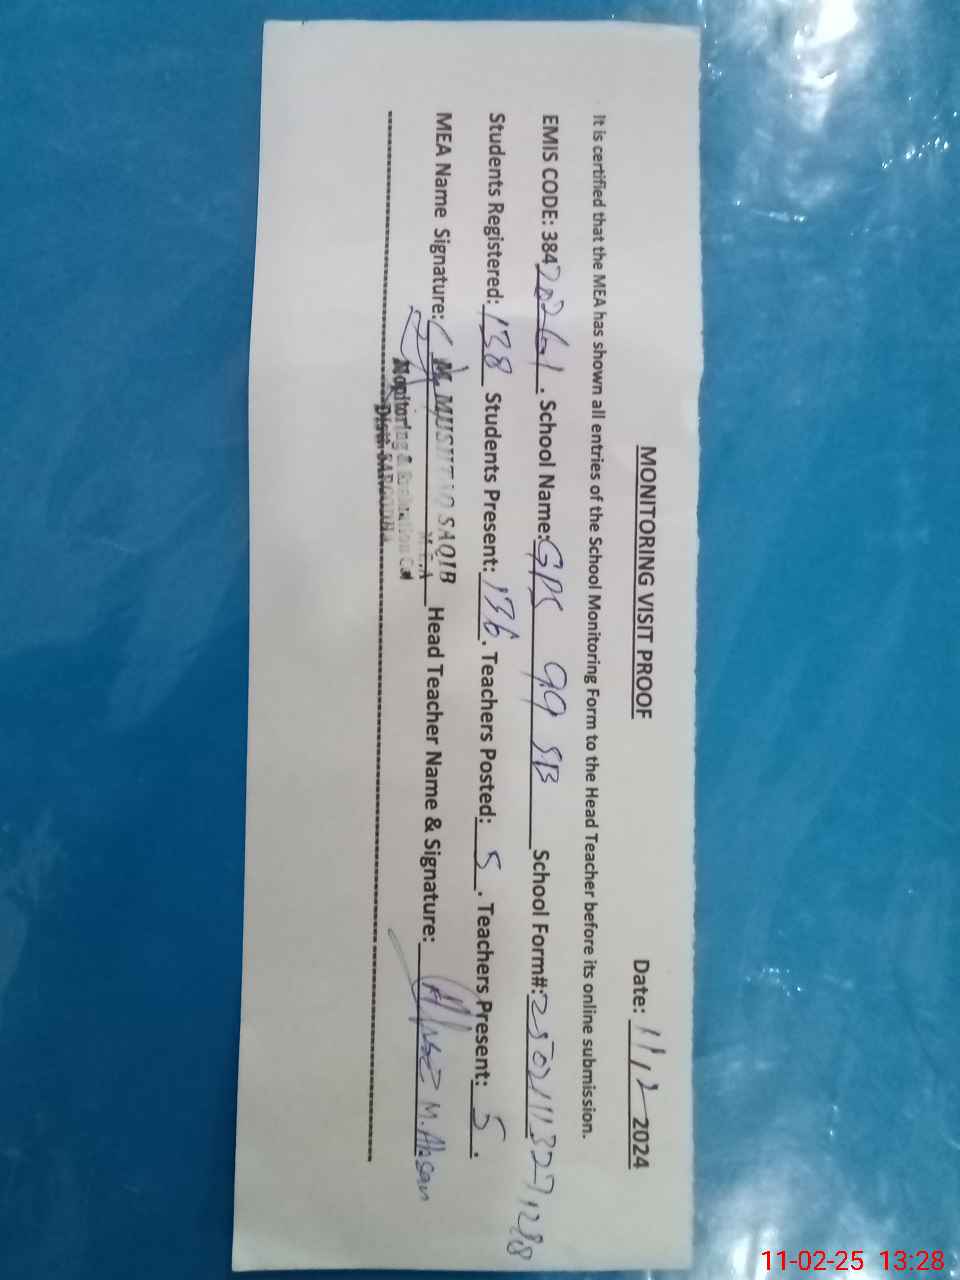 MONITORING VISIT PROOF Date: 11/2 2024
It is certified that the MEA has shown all entries of the School Monitoring Form to the Head Teacher before its online submission.
EMIS CODE: 384 20261 . School Name: GPS 99 SB School Form#: 25021113271288
Students Registered: 138 Students Present: 136 . Teachers Posted: 5 . Teachers Present: 5 .
MEA Name Signature: M. MUSHTAQ SAQIB Head Teacher Name & Signature: M. Ahsan
M.E.A
Monitoring & Evaluation Cell
Distt. SARGODHA
11-02-25 13:28